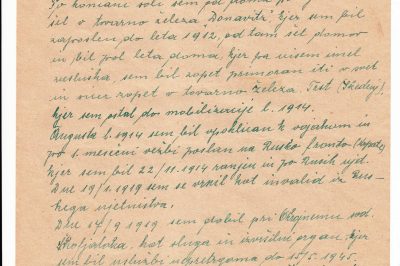 Po končani šoli sem od doma
šel v tovarno železa "Donavitz", kjer sem bil
zaposlen do leta 1912, od tam šel domov
in bil pol leta doma, kjer pa nisem imel
zaslužka, sem bil zopet primoran iti v svet
in sicer zopet v tovarno železa
kjer sem ostal do mobilizacije l. 1914.
Avgusta l. 1914 sem bil vpoklican k vojakom in
po 1. mesečni vežbi poslan na Rusko fronto
kjer sem bil 22/11. 1914 ranjen in po Rusih ujet.
Dne 19/1. 1919 sem se vrnil kot invalid iz Rus-
kega ujetništva.
Dne 14/9 1919 sem dobil pri Okrajnemu sod.
Škofjaloka, kot sluga in izvršilni organ, kjer
sem bil do 15/5. 1945.